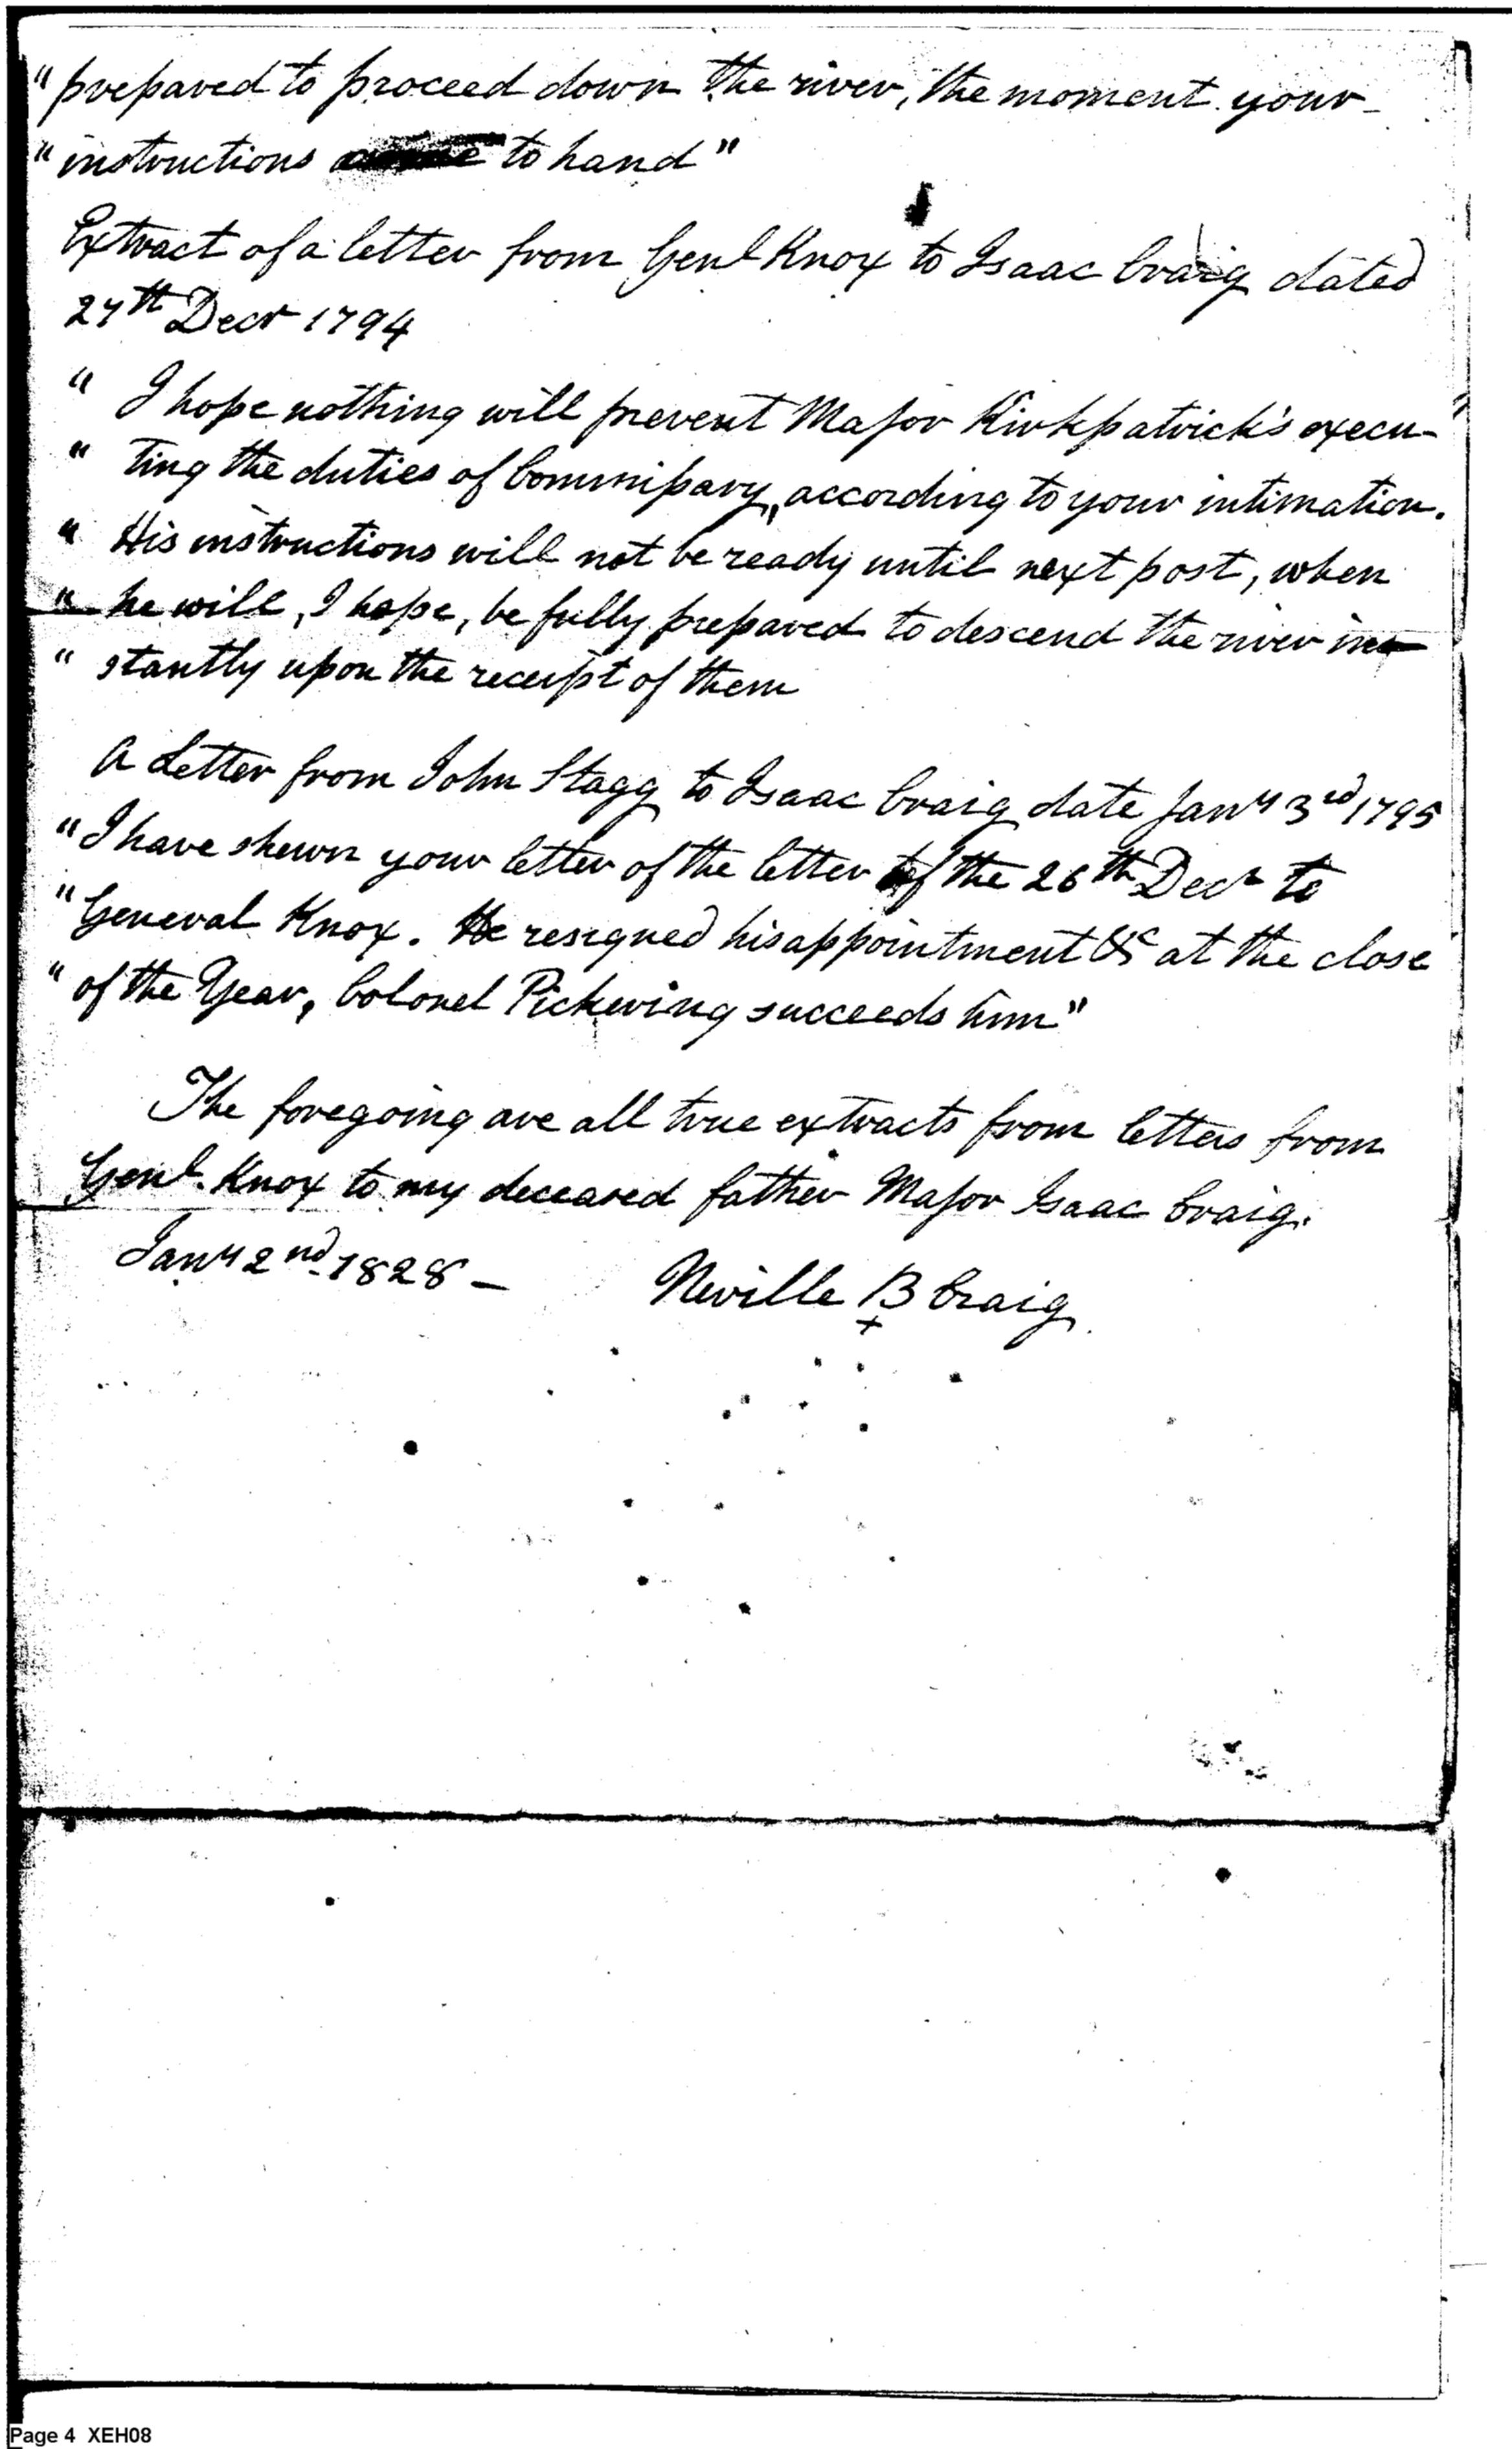 "prepared to proceed down the river, the moment your
"instructions to hand"
Extract of a letter from Genl Knox to Isaac Craig dated
27th Decr 1794
" I hope nothing will prevent Major Kirkpatrick's execu-
" ting the duties of Commissary, according to your intimation.
" His instructions will not be ready until next post, when
" he will, I hope, be fully prepared to descend the river in-
" stantly upon the receipt of them
A Letter from John Stagg to Isaac Craig date Jany 3rd 1795
"I have shewn your letter of the letter of the 26th Decr to
"General Knox. He resigned his appointment &c at the close
" of the Year, Colonel Pickering succeeds him"
The foregoing are all true extracts from letters from
Genl. Knox to my deceased father Major Isaac Craig.
Jany 2nd 1828 –
Neville B Craig
Page 4 XEH08